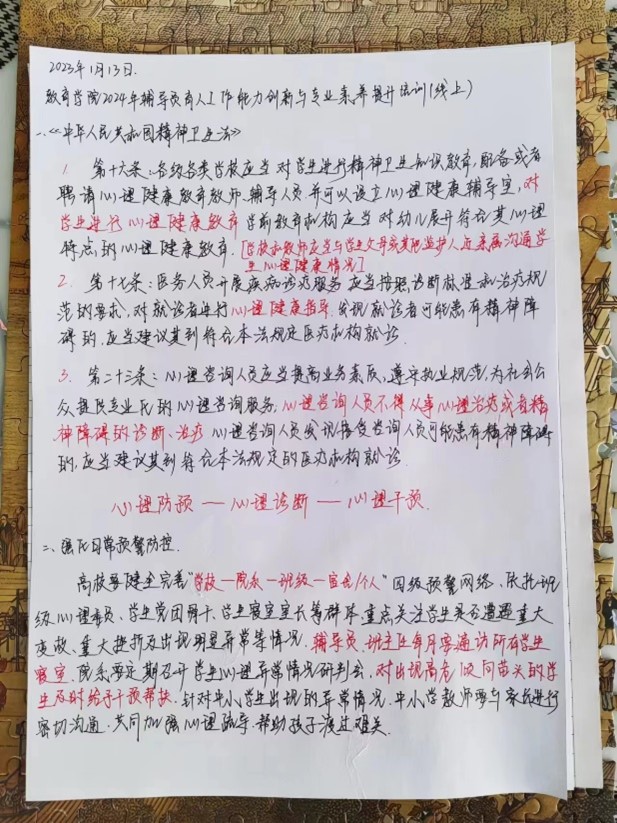 2023年1月13日.
教育学院2024年辅导员育人工作能力创新与专业素养提升培训(线上)
一、《中华人民共和国精神卫生法》
1. 第十六条:各级各类学校应当对学生进行精神卫生知识教育,配备或者
聘请心理健康教育教师、辅导人员,并可以设立心理健康辅导室,对
学生进行心理健康教育.学前教育机构应当对幼儿展开符合其心理
特点的心理健康教育.[学校和教师应当与学生父母或其他监护人、近亲属沟通学
生心理健康情况]
2. 第十七条:医务人员开展疾病诊疗服务,应当按照诊断标准和治疗规
范的要求,对就诊者进行心理健康指导.发现就诊者可能患有精神障
碍的,应当建议其到符合本法规定医疗机构就诊.
3. 第二十三条:心理咨询人员应当提高业务素质,遵守执业规范,为社会公
众提供专业化的心理咨询服务,心理咨询人员不得从事心理治疗或者精
神障碍的诊断、治疗.心理咨询人员发现接受咨询人员可能患有精神障碍
的,应当建议其到符合本法规定的医疗机构就诊.
心理防预—心理诊断—心理干预.
二、强化日常预警防控.
高校要健全完善"学校—院系—班级—宿舍/个人"四级预警网络、依托班
级心理委员、学生党团骨干、学生寝室室长等群体,重点关注学生是否遭遇重大
变故、重大挫折及出现明显异常等情况.辅导员、班主任每月要遍访所有学生
寝室.院系要定期召开学生心理异常情况研判会,对出现高危倾向苗头的学
生及时给予干预帮扶.针对中小学生出现的异常情况,中小学教师要与家长进行
密切沟通,共同加强心理疏导,帮助孩子渡过难关.